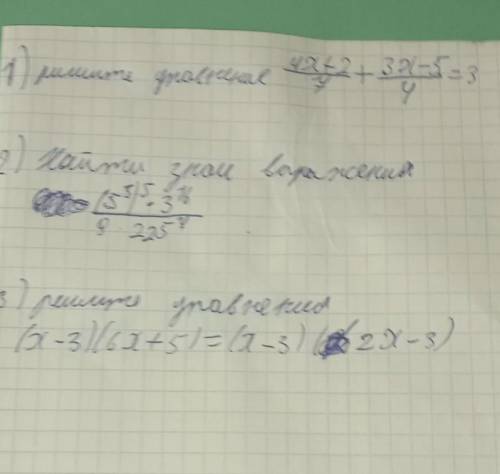 1) решите уравнение (4x+2)/7 + (3x-5)/4 = 3
2) Найти знач выражения
(5⁵)⁵ · 3¹⁸
9 225⁹
3) решите уравнения
(x-3)(6x+5)=(x-3)(2x-3)